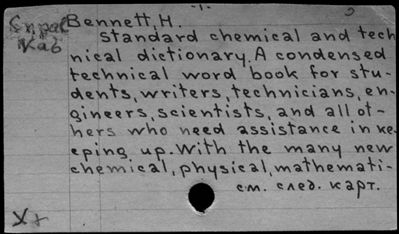 Bennett, H.
Standard chemical and tech
nical dictionary. A condensed
technical word book for stu-
dents, writers, technicians, en-
gineers, scientists, and all ot-
hers who need assistance in ke-
eping up. With the many new
chemical, physical, mathemati-
см. след. карт.